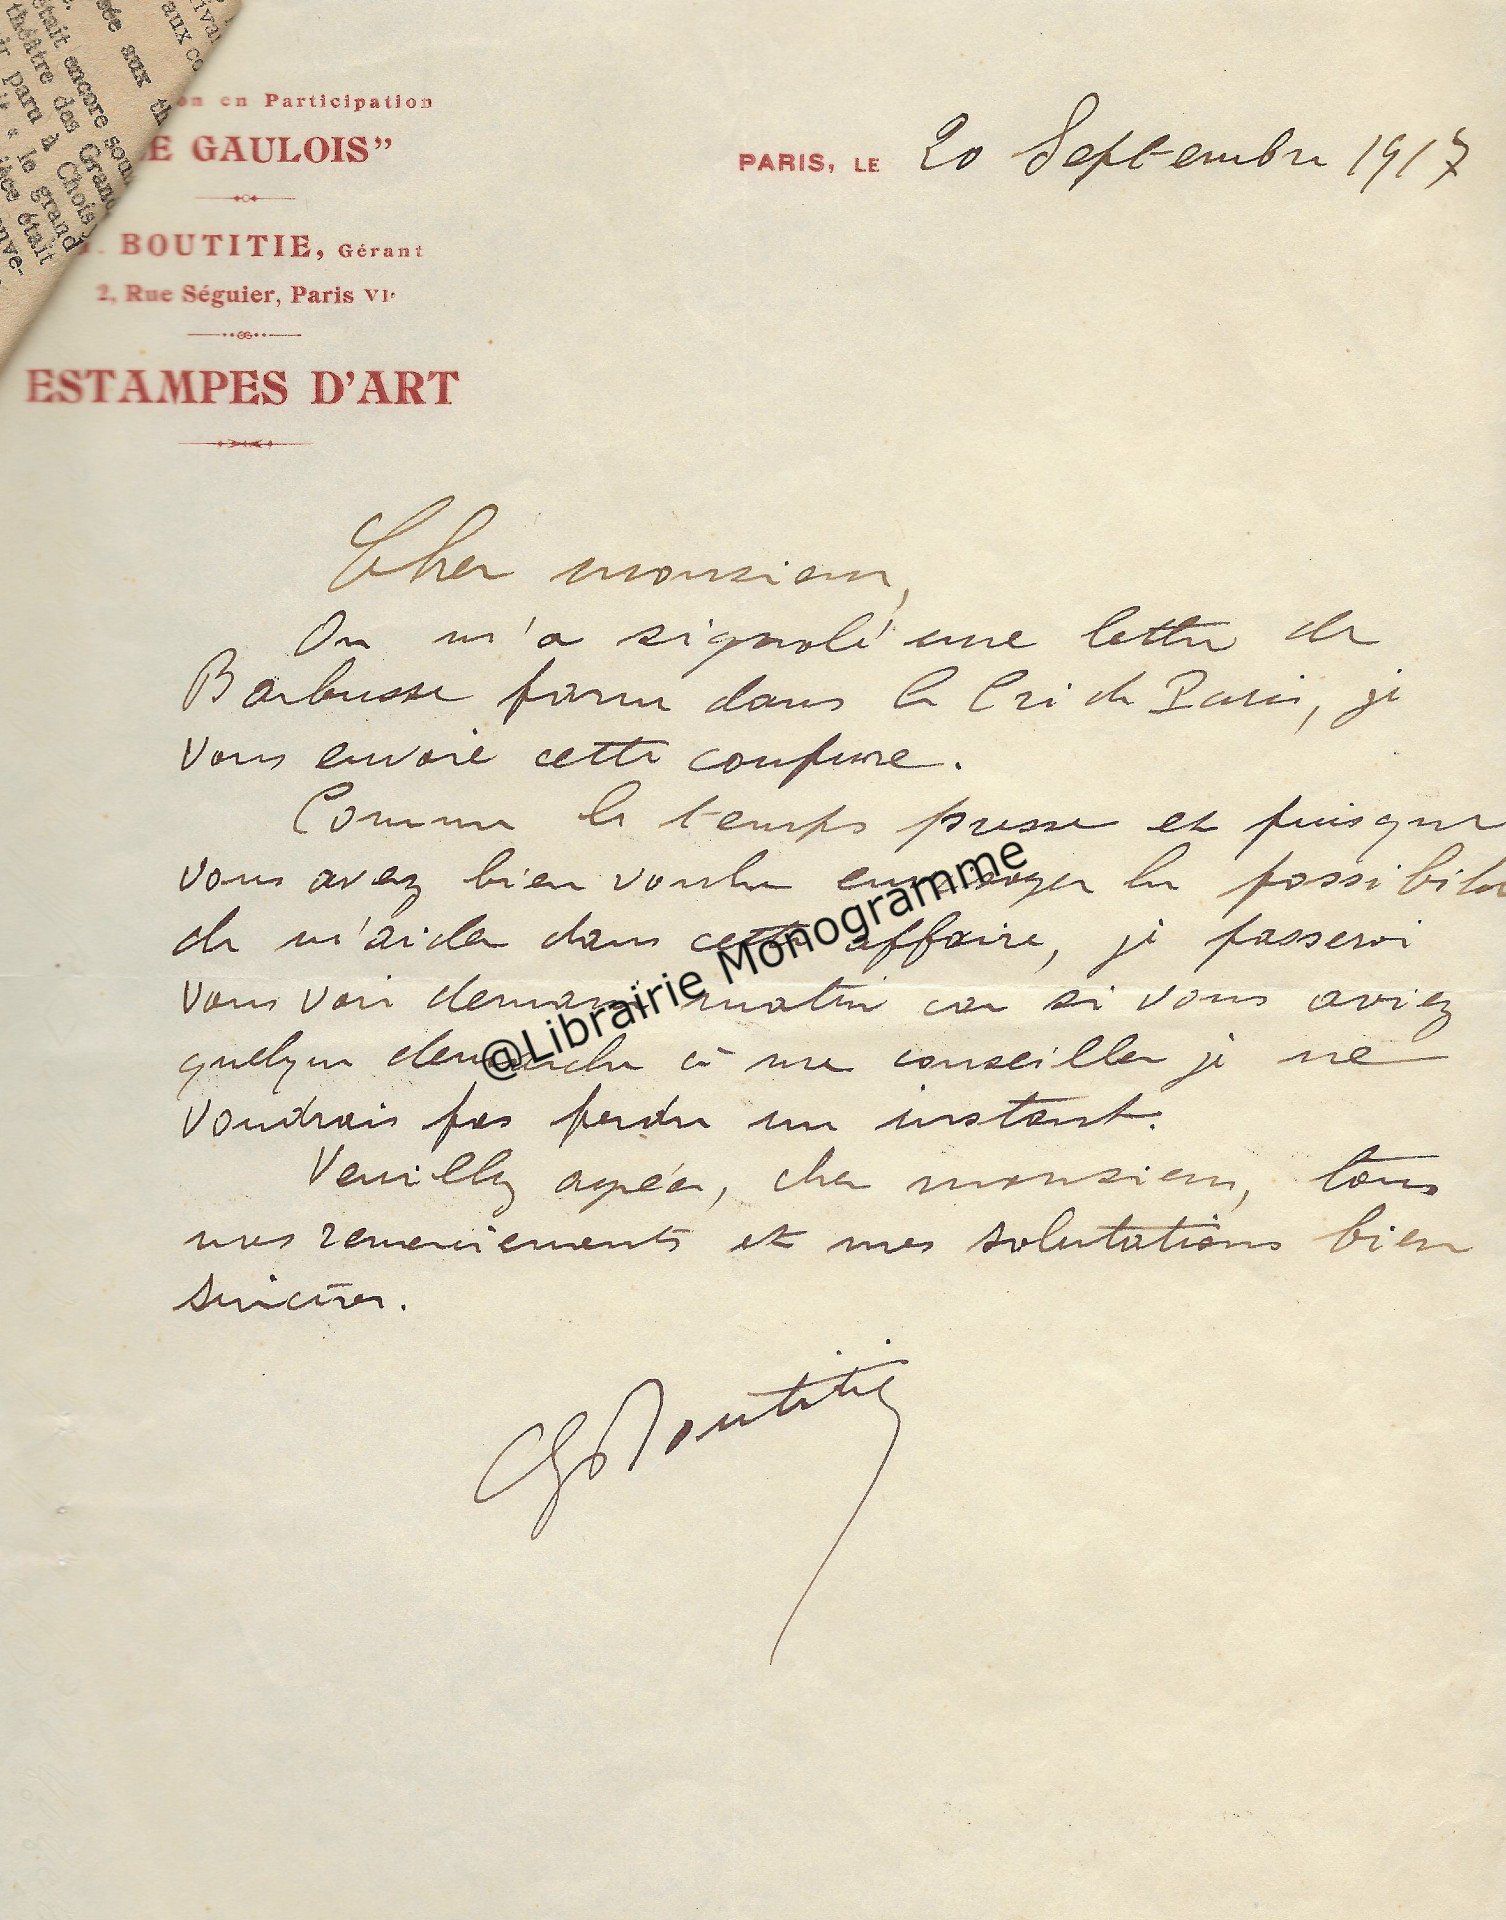 ivai
sée aux th
aux co
était encore sou
théâtre des Grand
ir paru à Chois
le grand
ièce était
uve-
on en Participation
E GAULOIS"
BOUTITIE, Gérant
2, Rue Séguier, Paris VIe
ESTAMPES D'ART
PARIS, LE 20 Septembre 1917
Cher monsieur,
On m'a signalé une lettre de
Barbusse parue dans le Cri de Paris, je
vous envoie cette coupure.
Comme le temps presse et puisque
vous avez bien voulu envisager la possibilité
de m'aider dans cette affaire, je passerai
vous voir demain matin car si vous aviez
quelque démarche à me conseiller je ne
voudrais pas perdre un instant.
Veuillez agréer, cher monsieur, tous
mes remerciements et mes salutations bien
sincères.
G Boutitie
@Librairie Monogramme